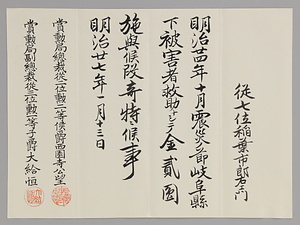 從七位稲葉市郎右衛門
明治廿四年十月震災ノ節岐阜縣
下被害者救助トシテ金貳圓
施與候段奇特候事
明治廿七年一月十三日
賞勲局總裁從二位勲一等侯爵西園寺公望
賞勲局副總裁從三位勲二等子爵大給恒